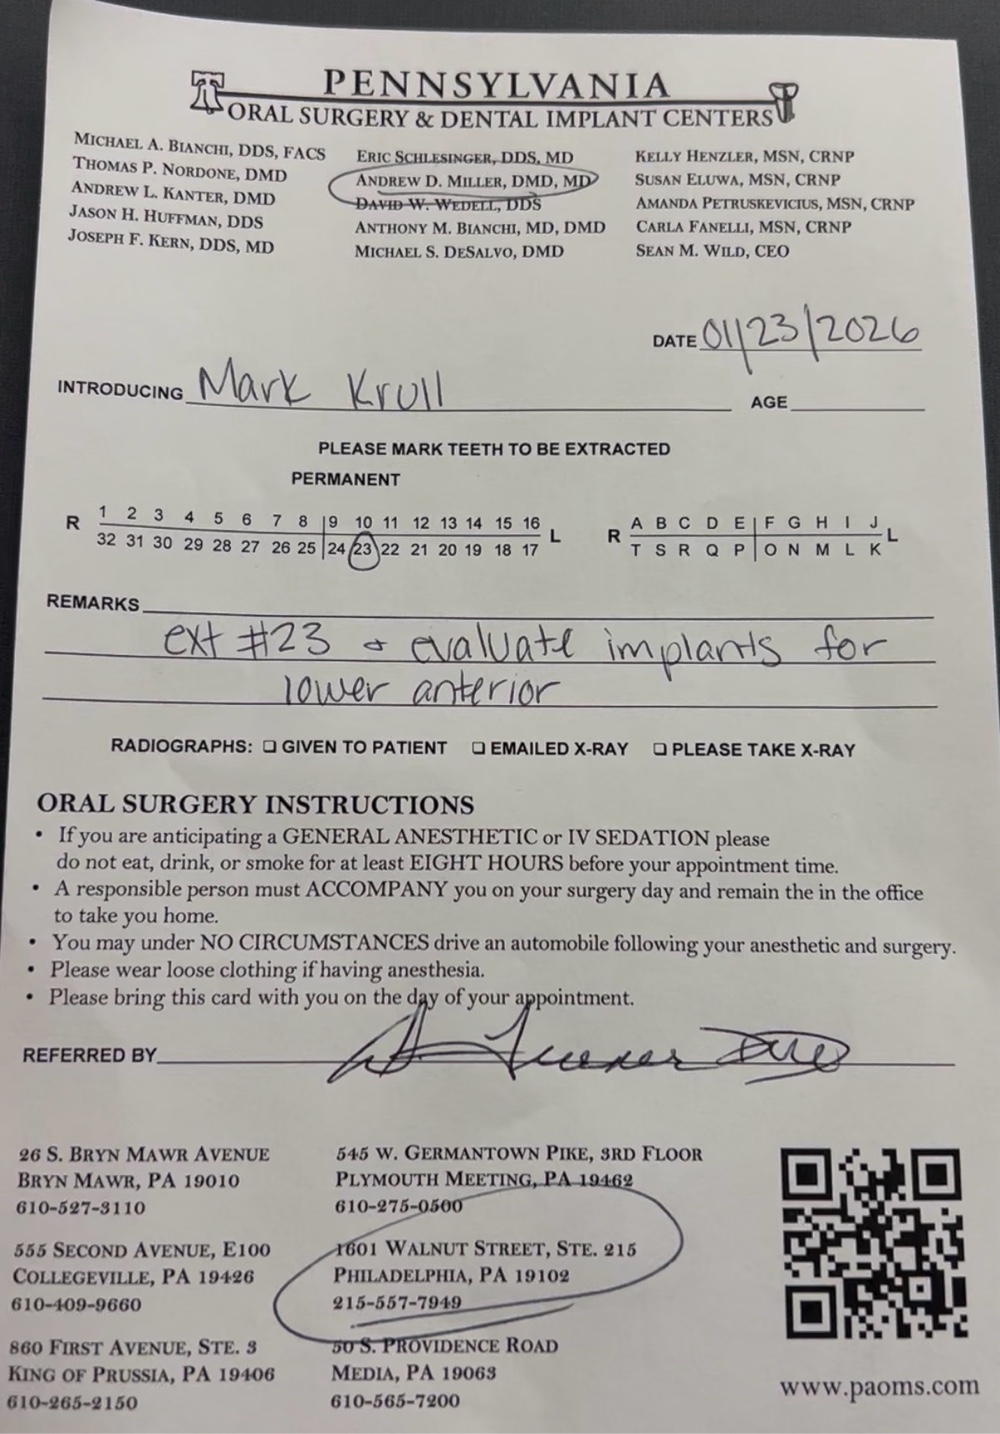 PENNSYLVANIA
ORAL SURGERY & DENTAL IMPLANT CENTERS
MICHAEL A. BIANCHI, DDS, FACS
THOMAS P. NORDONE, DMD
ANDREW L. KANTER, DMD
JASON H. HUFFMAN, DDS
JOSEPH F. KERN, DDS, MD
ERIC SCHLESINGER, DDS, MD
ANDREW D. MILLER, DMD, MD
DAVID W. WEDELL, DDS
ANTHONY M. BIANCHI, MD, DMD
MICHAEL S. DESALVO, DMD
KELLY HENZLER, MSN, CRNP
SUSAN ELUWA, MSN, CRNP
AMANDA PETRUSKEVICIUS, MSN, CRNP
CARLA FANELLI, MSN, CRNP
SEAN M. WILD, CEO
DATE 01/23/2026
INTRODUCING Mark Krull
AGE
PLEASE MARK TEETH TO BE EXTRACTED
PERMANENT
R 1 2 3 4 5 6 7 8 9 10 11 12 13 14 15 16 L
32 31 30 29 28 27 26 25 24 23 22 21 20 19 18 17
R A B C D E F G H I J L
T S R Q P O N M L K
REMARKS
ext #23 & evaluate implants for
lower anterior
RADIOGRAPHS: ❏ GIVEN TO PATIENT ❏ EMAILED X-RAY ❏ PLEASE TAKE X-RAY
ORAL SURGERY INSTRUCTIONS
• If you are anticipating a GENERAL ANESTHETIC or IV SEDATION please
do not eat, drink, or smoke for at least EIGHT HOURS before your appointment time.
• A responsible person must ACCOMPANY you on your surgery day and remain the in the office
to take you home.
• You may under NO CIRCUMSTANCES drive an automobile following your anesthetic and surgery.
• Please wear loose clothing if having anesthesia.
• Please bring this card with you on the day of your appointment.
REFERRED BY
26 S. BRYN MAWR AVENUE
BRYN MAWR, PA 19010
610-527-3110
555 SECOND AVENUE, E100
COLLEGEVILLE, PA 19426
610-409-9660
860 FIRST AVENUE, STE. 3
KING OF PRUSSIA, PA 19406
610-265-2150
545 W. GERMANTOWN PIKE, 3RD FLOOR
PLYMOUTH MEETING, PA 19462
610-275-0500
1601 WALNUT STREET, STE. 215
PHILADELPHIA, PA 19102
215-557-7949
50 S. PROVIDENCE ROAD
MEDIA, PA 19063
610-565-7200
www.paoms.com